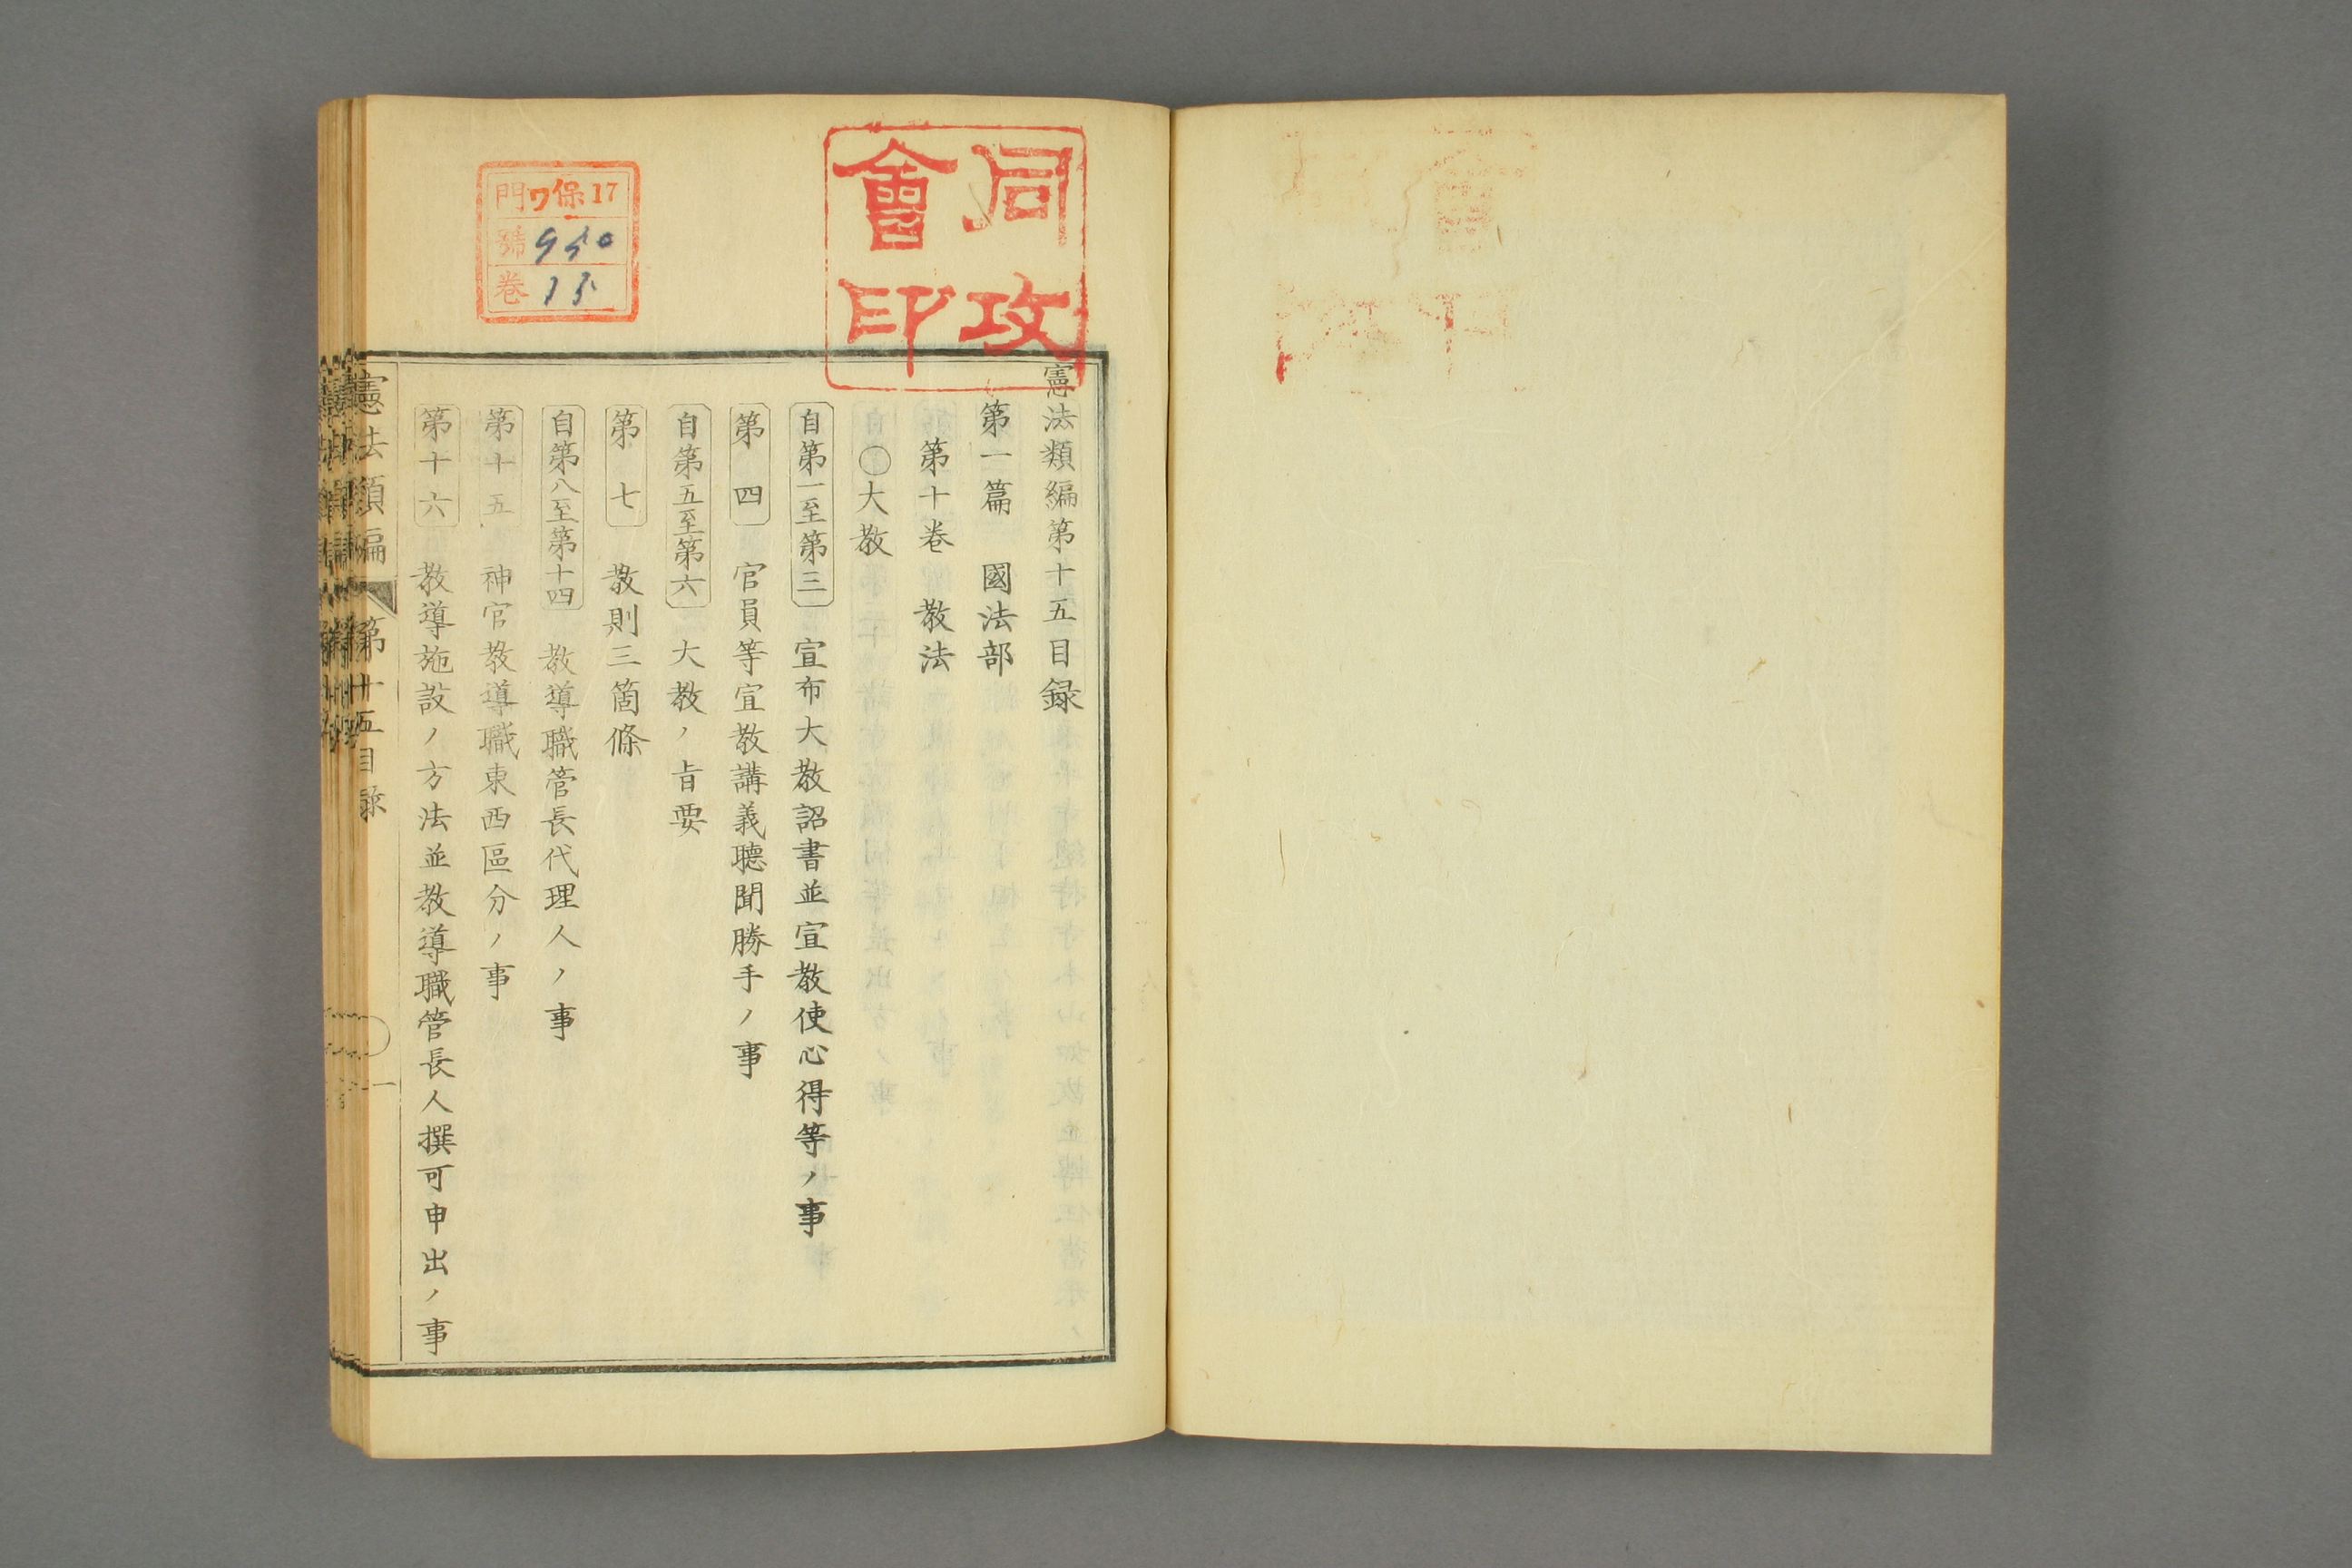 同攻
會印
憲法類編第十五目録
第一篇 國法部
第十卷 教法
○大教
自第一至第三 宣布大教詔書並宣教使心得等ノ事
第四 官員等宣教講義聽聞勝手ノ事
自第五至第六 大教ノ旨要
第七 教則三箇條
自第八至第十四 教導職管長代理人ノ事
第十五 神官教導職東西區分ノ事
第十六 教導施設ノ方法並教導職管長人撰可申出ノ事
憲法類編 第十五目録 一
門ワ保17
號950
卷15